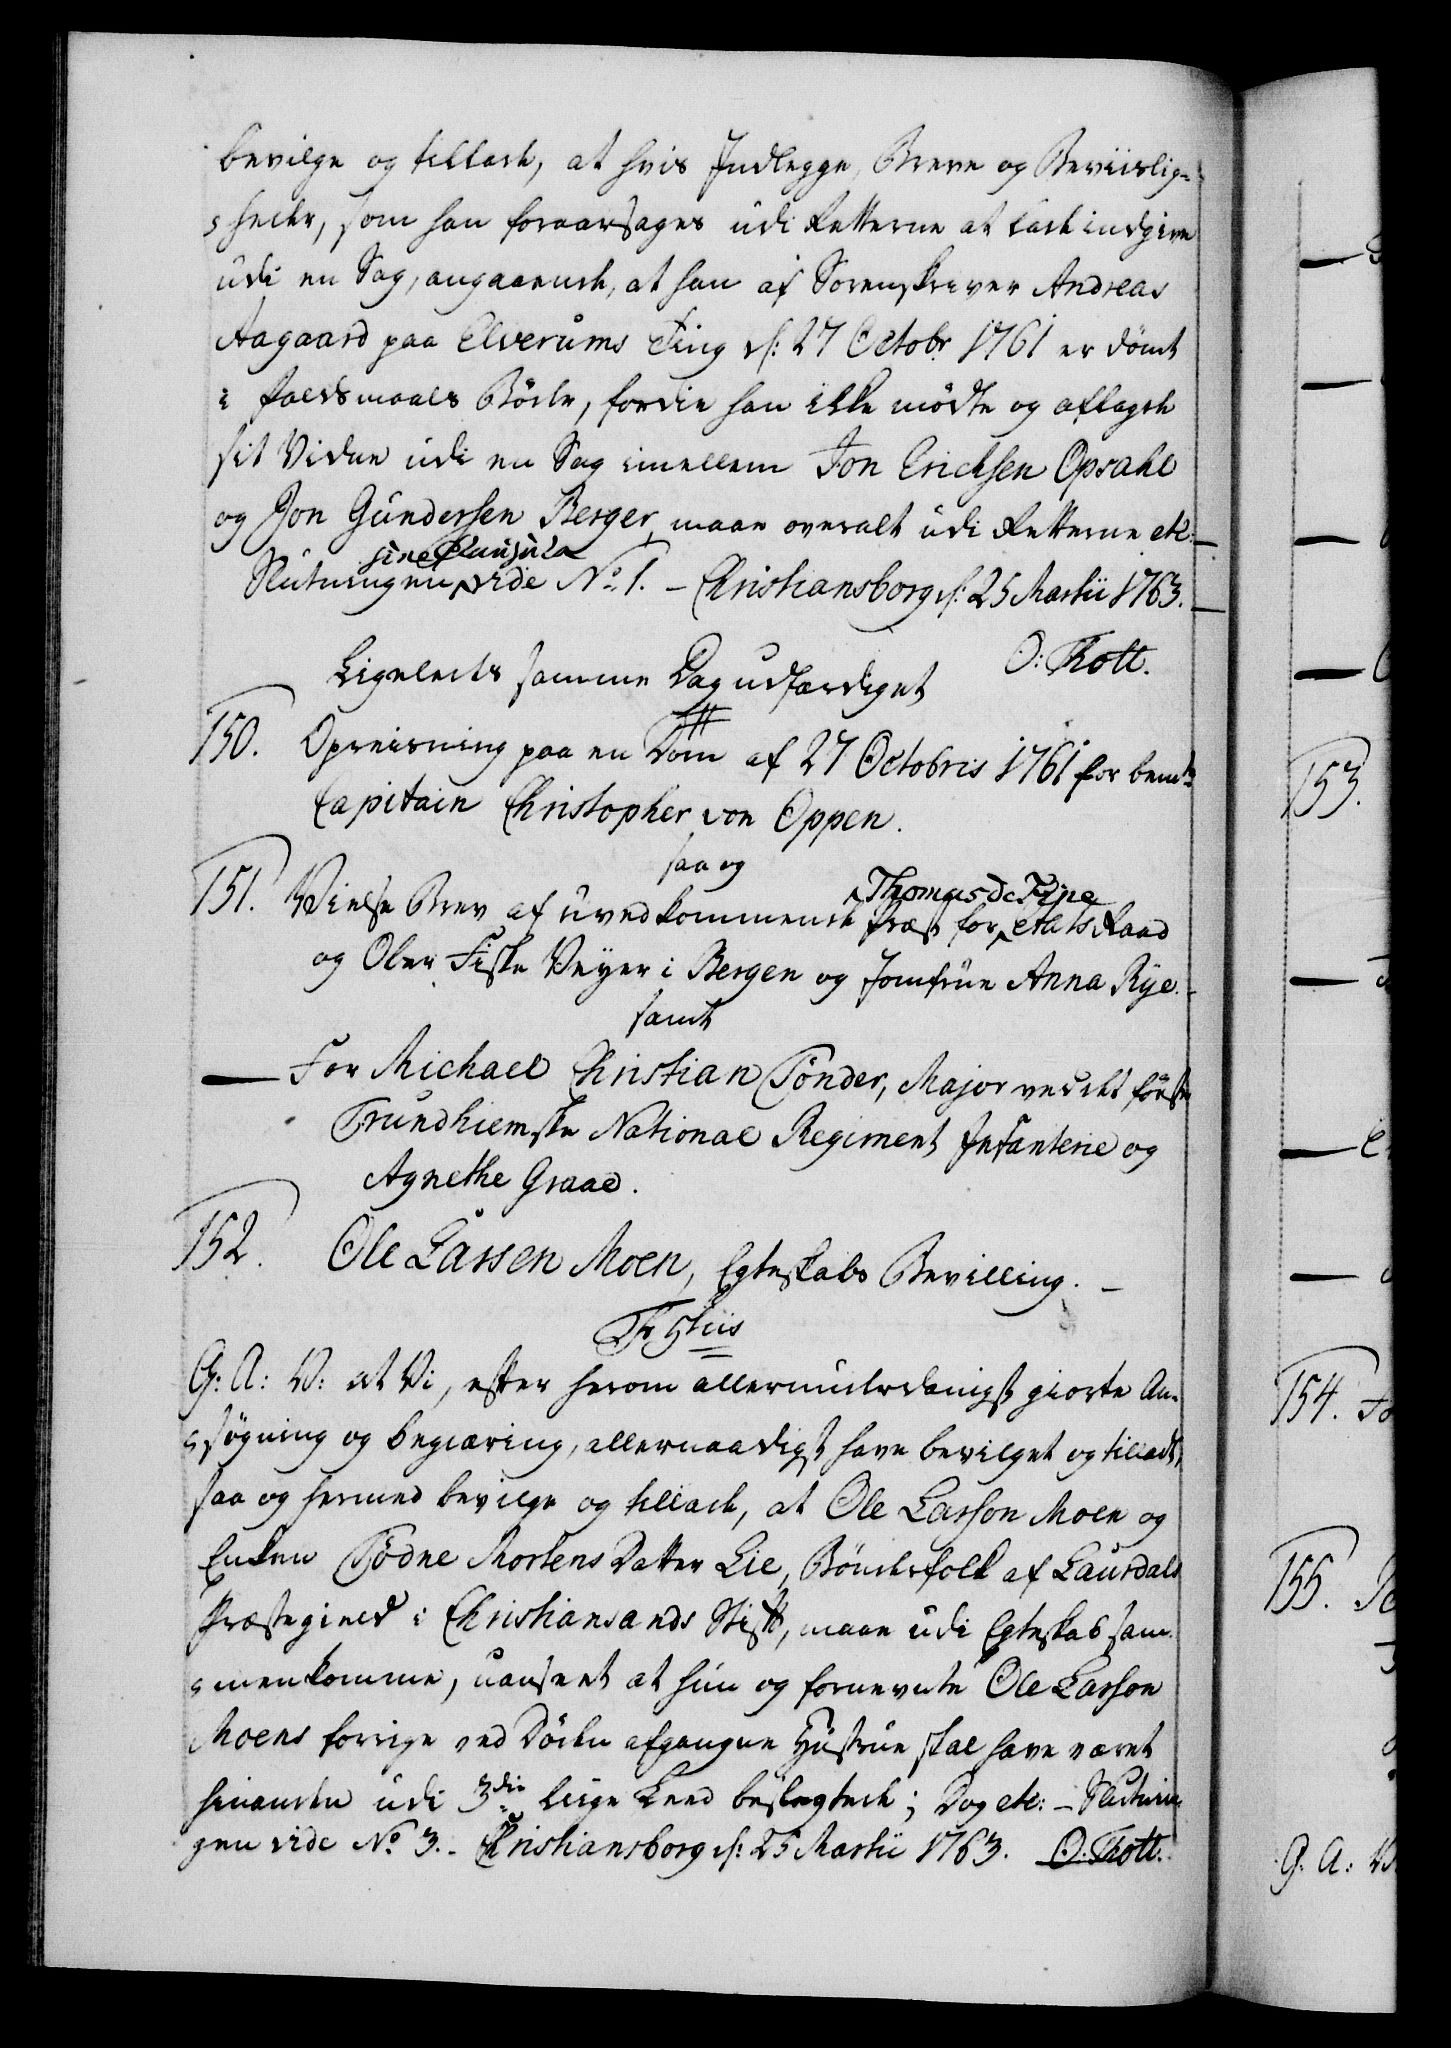 bevilge og tillade, at hvis Indlegge, Breve og Beviislig=
=heder, som han foraarsages udi Retterne at lade indgive
udi en Sag, angaaende, at han af Sorenskriver Andreas
Aagaard paa Elverums Ting d: 27 Octobr 1761 er dömt
i Faldsmaals Böder, fordie han ikke mödte og aflagde
sit Vidne udi en Sag imellem Jon Erichsen Opsahl
og Jon Gundersen Berger, maae overalt udi Retterne etc:
sine Clausula
Slutningen vide No 1. - Christiansborg d: 25 Martii 1763.
O: Thott.
Ligeledes samme Dag udfærdiget
150. Opreisning paa en Dom af 27 Octobris 1761 for bemte
Capitain Christopher von Oppen.
saa og
Thomas de Fine
151. Vielse Brev af uvedkommende Præst for, etats Raad
og Over Fiske Veyer i Bergen og Jomfrue Anna Rye.
samt
For Michael Christian Tönder, Major ved det förste
Trundhiemske National Regiment Infanterie og
Agnethe Graae.
152. Ole Larssen Moen, Egteskabs Bevilling.
Fr 5tus
G: A: V: at Vi, efter herom allerunderdanigst giorte An=
=søgning og begiæring, allernaadigst have bevilget og tilladt,
saa og hermed bevilge og tillade, at Ole Larsson Moen og
Enken Tödne Mortens Datter Lie, Bönderfolk af Laurdals
Præstegield i Christiansands Stift, maae udi Egteskab sam=
=menkomme, uanseet at hun og fornevnte Ole Larsson
Moens forrige ved Döden afgangne Hustrue skal have været
hinanden udi 3die liige Leed beslegtede; Dog etc: - Slutnin=
gen vide No 3. - Christiansborg d: 25 Martii 1763. O: Thott.
153.
154. Fo
155.
G: A: V